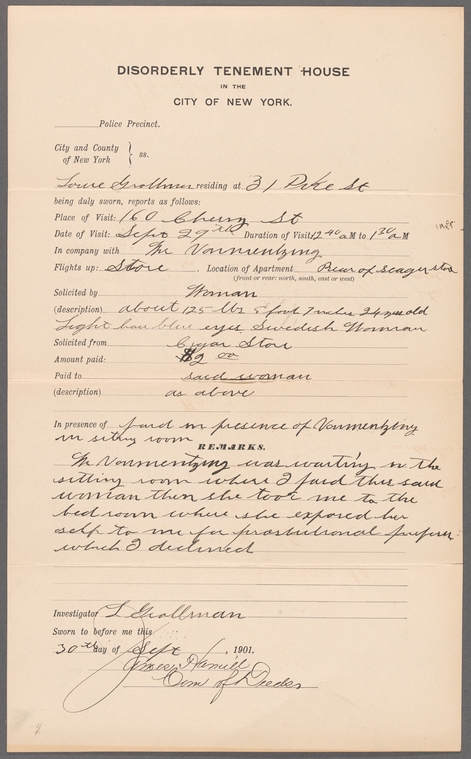 DISORDERLY TENEMENT HOUSE
IN THE
CITY OF NEW YORK.
Police Precinct.
City and County
of New York } ss.
Louie Grollman residing at 31 Pike St
being duly sworn, reports as follows:
Place of Visit: 160 Cherry St
Date of Visit: Sept 29th Duration of Visit 12 40 a M to 1 30 a M
In company with Mr Vonmentzing
Flights up: Store Location of Apartment Rear of seagar store
(front or rear: north, south, east or west)
Solicited by Woman
(description) about 125 lbs 5 foot 7 inches 24 years old
Light hair blue eyes Swedish Woman
Solicited from Cigar Store
Amount paid: $2 00
Paid to said woman
(description) as above
In presence of paid in presence of Vonmentzing
in sitting room
REMARKS.
Mr Vonmentzing was waiting in the
sitting room where I paid this said
woman then she took me to the
bed room where she exposed her
self to me for prostitutional purposes
which I declined
Investigator L Grollman
Sworn to before me this
30th day of Sept, 1901.
James Hamill
Com of Deeds